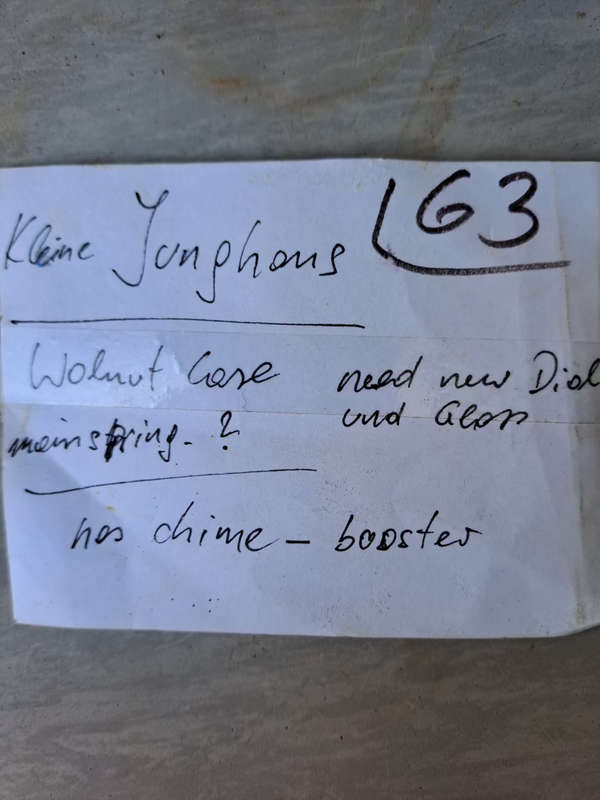 63
Kleine Junghans
Walnut Case
need new Dial
und Glass
mainspring - ?
has chime - booster